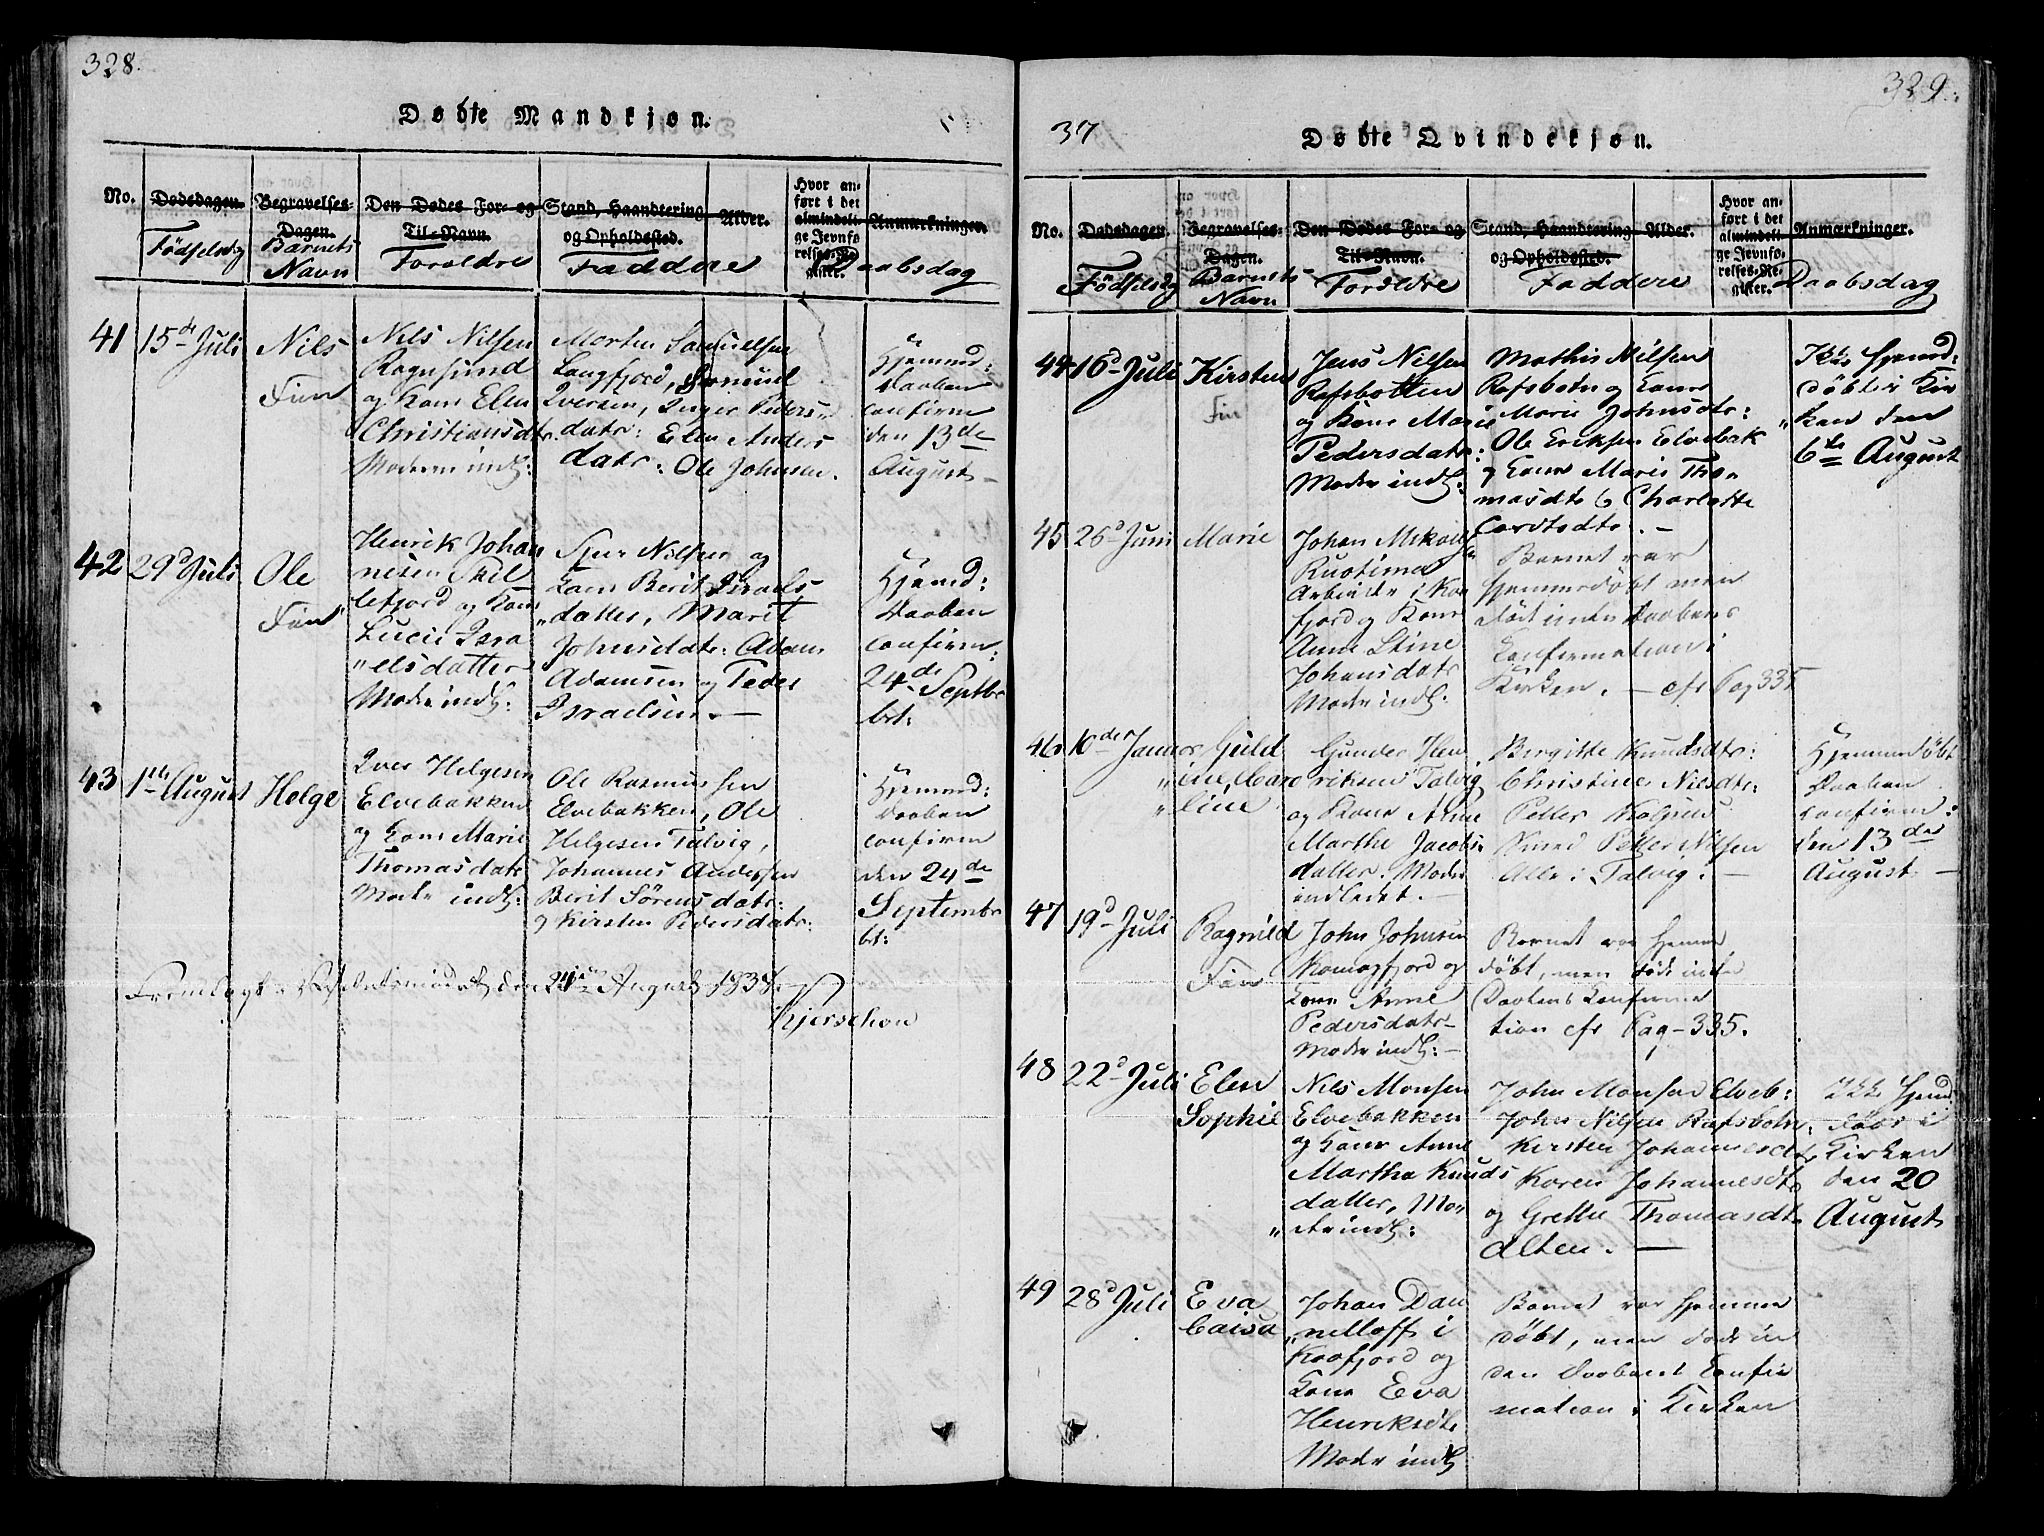 328.
Døbte Mandkjøn.
No.
Dødsdagen.
Fødselsdg
Begravelses-
Dagen.
Barnets
Navn
Den Dødes For- og
Til-Navn.
Foreldre
Stand, Haandtering
og Opholdssted.
Faddere
Alder.
Hvor an-
ført i det
almindeli-
ge Jevnfø-
relses-Re-
gister.
Anmærkninger.
Daabsdag
41
15de Juli
Nils
Fin
Nils Nilsen
Rognsund
og Kone Elen
Christiansdtr.
Moderen indl:
Morten Samuelsen
Langfjord,
Iversen, Inger Peders
datr: Elen Anders
datr: Ole Johnsen.
Hjemmed:
Daaben
confirm
den 13de
August
42
29d Juli
Ole
Fin
Henrik Johan
nesen Skil
lefjord og Kone
Lucie Isra
"elsdatter
Moder indl:
Nilsen og
Kone Berit Israels
"datter, Marit
Johnsdatr: Adam
Adamsen og Peder
Israelsen. —
Hjemd:
Daaben
confirm:
24de Septbr
43
1ste August
Helge
Iver Helgesen
Elvebakken
og Kone Marie
Thomasdatr
Moder indl:
Ole Rasmussen
Elvebakken, Ole
Helgesen Talvig,
Johannes Andersen
Berit Sørensdatr:
og Kirsten Pedersdatr:
Hjemmd:
Daaben
confirm
den 24de
Septembr
Fremlagt i den 24de August 1837.
Kjerschow
37
329.
Døbte Qvindekjøn.
No.
Dødsdagen.
Fødselsdg
Begravelses-
Dagen.
Barnets
Navn
Den Dødes For- og
Til-Navn.
Foreldre
Stand, Haandtering
og Opholdssted.
Faddere
Alder.
Hvor an-
ført i det
almindeli-
ge Jevnfø-
relses-Re-
gister.
Anmærkninger.
Daabsdag
44
16d Juli
Kirsten
Fin
Jens Nilsen
Rafsbotten
og Kone Marie
Pedersdatr:
Moder indl:
Mathis Nilsen
Rafsbotn og Kone
Marie Johnsdtr:
Ole Eriksen Elvebak
og Kone Marie Tho
masdtr & Charlotte
Ikke Hjemd:
døbt i Kir
"ken den
6te August
45
26d Juni
Marie
Johan
Arbeider i Kaa
fjord og Kone
Anne Stine
Johansdatr
Moder indl:
Barnet var
Hjemmedøbt men
døde inden Daabens
Confirmation i
Kirken. — cfr Pag 335
46
10de Januar
Guld
"ine Caro
"line
Gunder Hen
riksen Talvig
og Kone Anne
Marthe Jacobs
datter. Moder
indledet. —
Birgitte Knudsdtr:
Christine Nilsdtr:
Petter
Petter Nilsen
Alle i Talvig. —
Hjemmedøbt
Daaben
confirm:
den 13de
August —
47
19d Juli
Ragnild
Fin
John Johnsen
Komagfjord og
Kone Anne
Pedersdatr
Moder indl: —
Barnet var Hjemme
døbt, men døde inden
Daabens Confirma
tion cfr Pag-335.
48
22d Juli
Elen
Sophie
Nils Monsen
Elvebakken
og Kone Anne
Martha Knuds
datter, Mo
"der indl:
John Monsen Elveb:
John Nilsen Rafsbotn
Kirsten Johannesdtr
Karen Johannesdtr
og Grethe Thomasdtr
Alten. —
Ikke Hjemd
døbt i
Kirken
den 20
August
49
28d Juli
Eva
Caisa
Johan Dan
"nelloff i
Kaafjord og
Kone Eva
Henriksdtr
Moder indl
Barnet var Hjemme
døbt, men døde in
den Daabens Confir
mation i Kirken